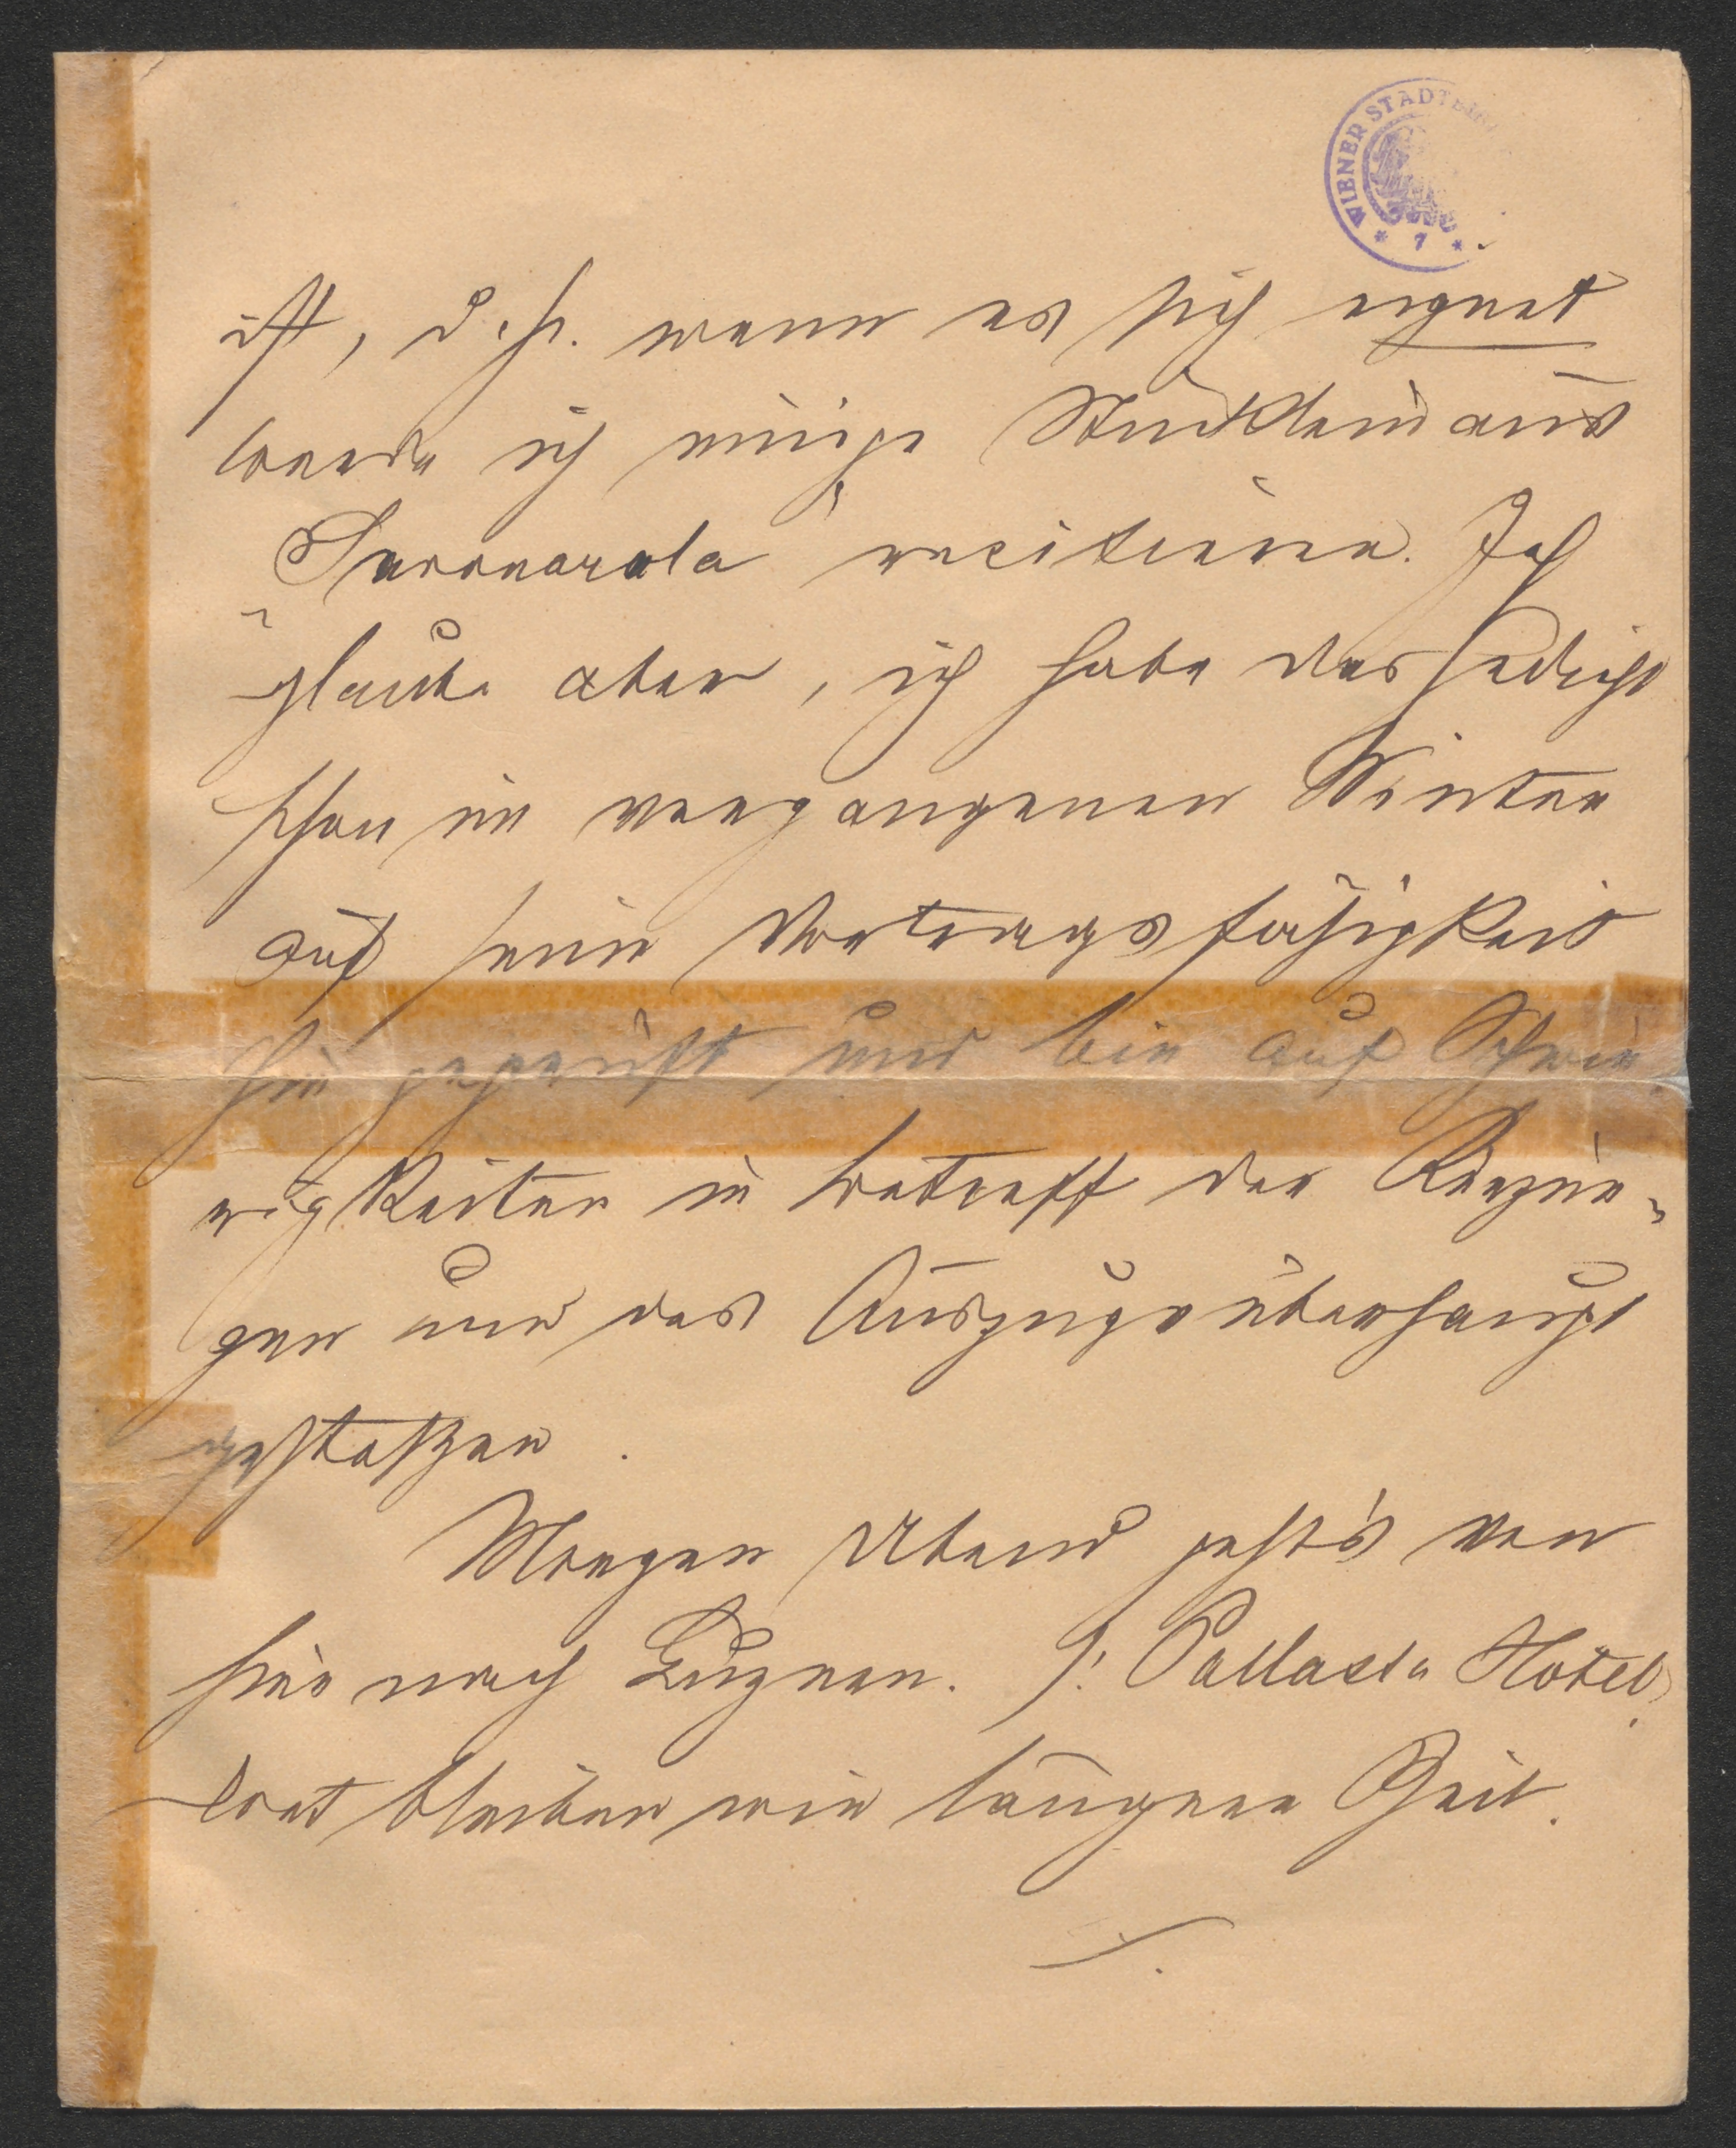 WIENER STADTBIB
* 7 *
ist, d.h. wenn es sich eignet
werde ich einige Stücklein aus
Savonarola recitieren. Ich
glaube aber, ich habe das Gedicht
schon im vergangenen Winter
auf seine Vortragsfähigkeit
hin geprüft und bin auf Schwie
rigkeiten in betreff der Kürzun-
gen und des Auszugs überhaupt
gestoßen.
Morgen Abend geht's von
hier nach Luzern.
dort bleiben wir längere Zeit.